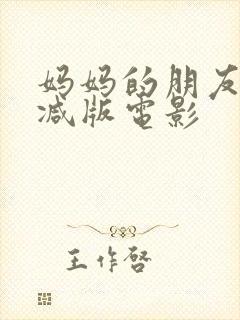 妈妈的朋友
减版電影
王作啓